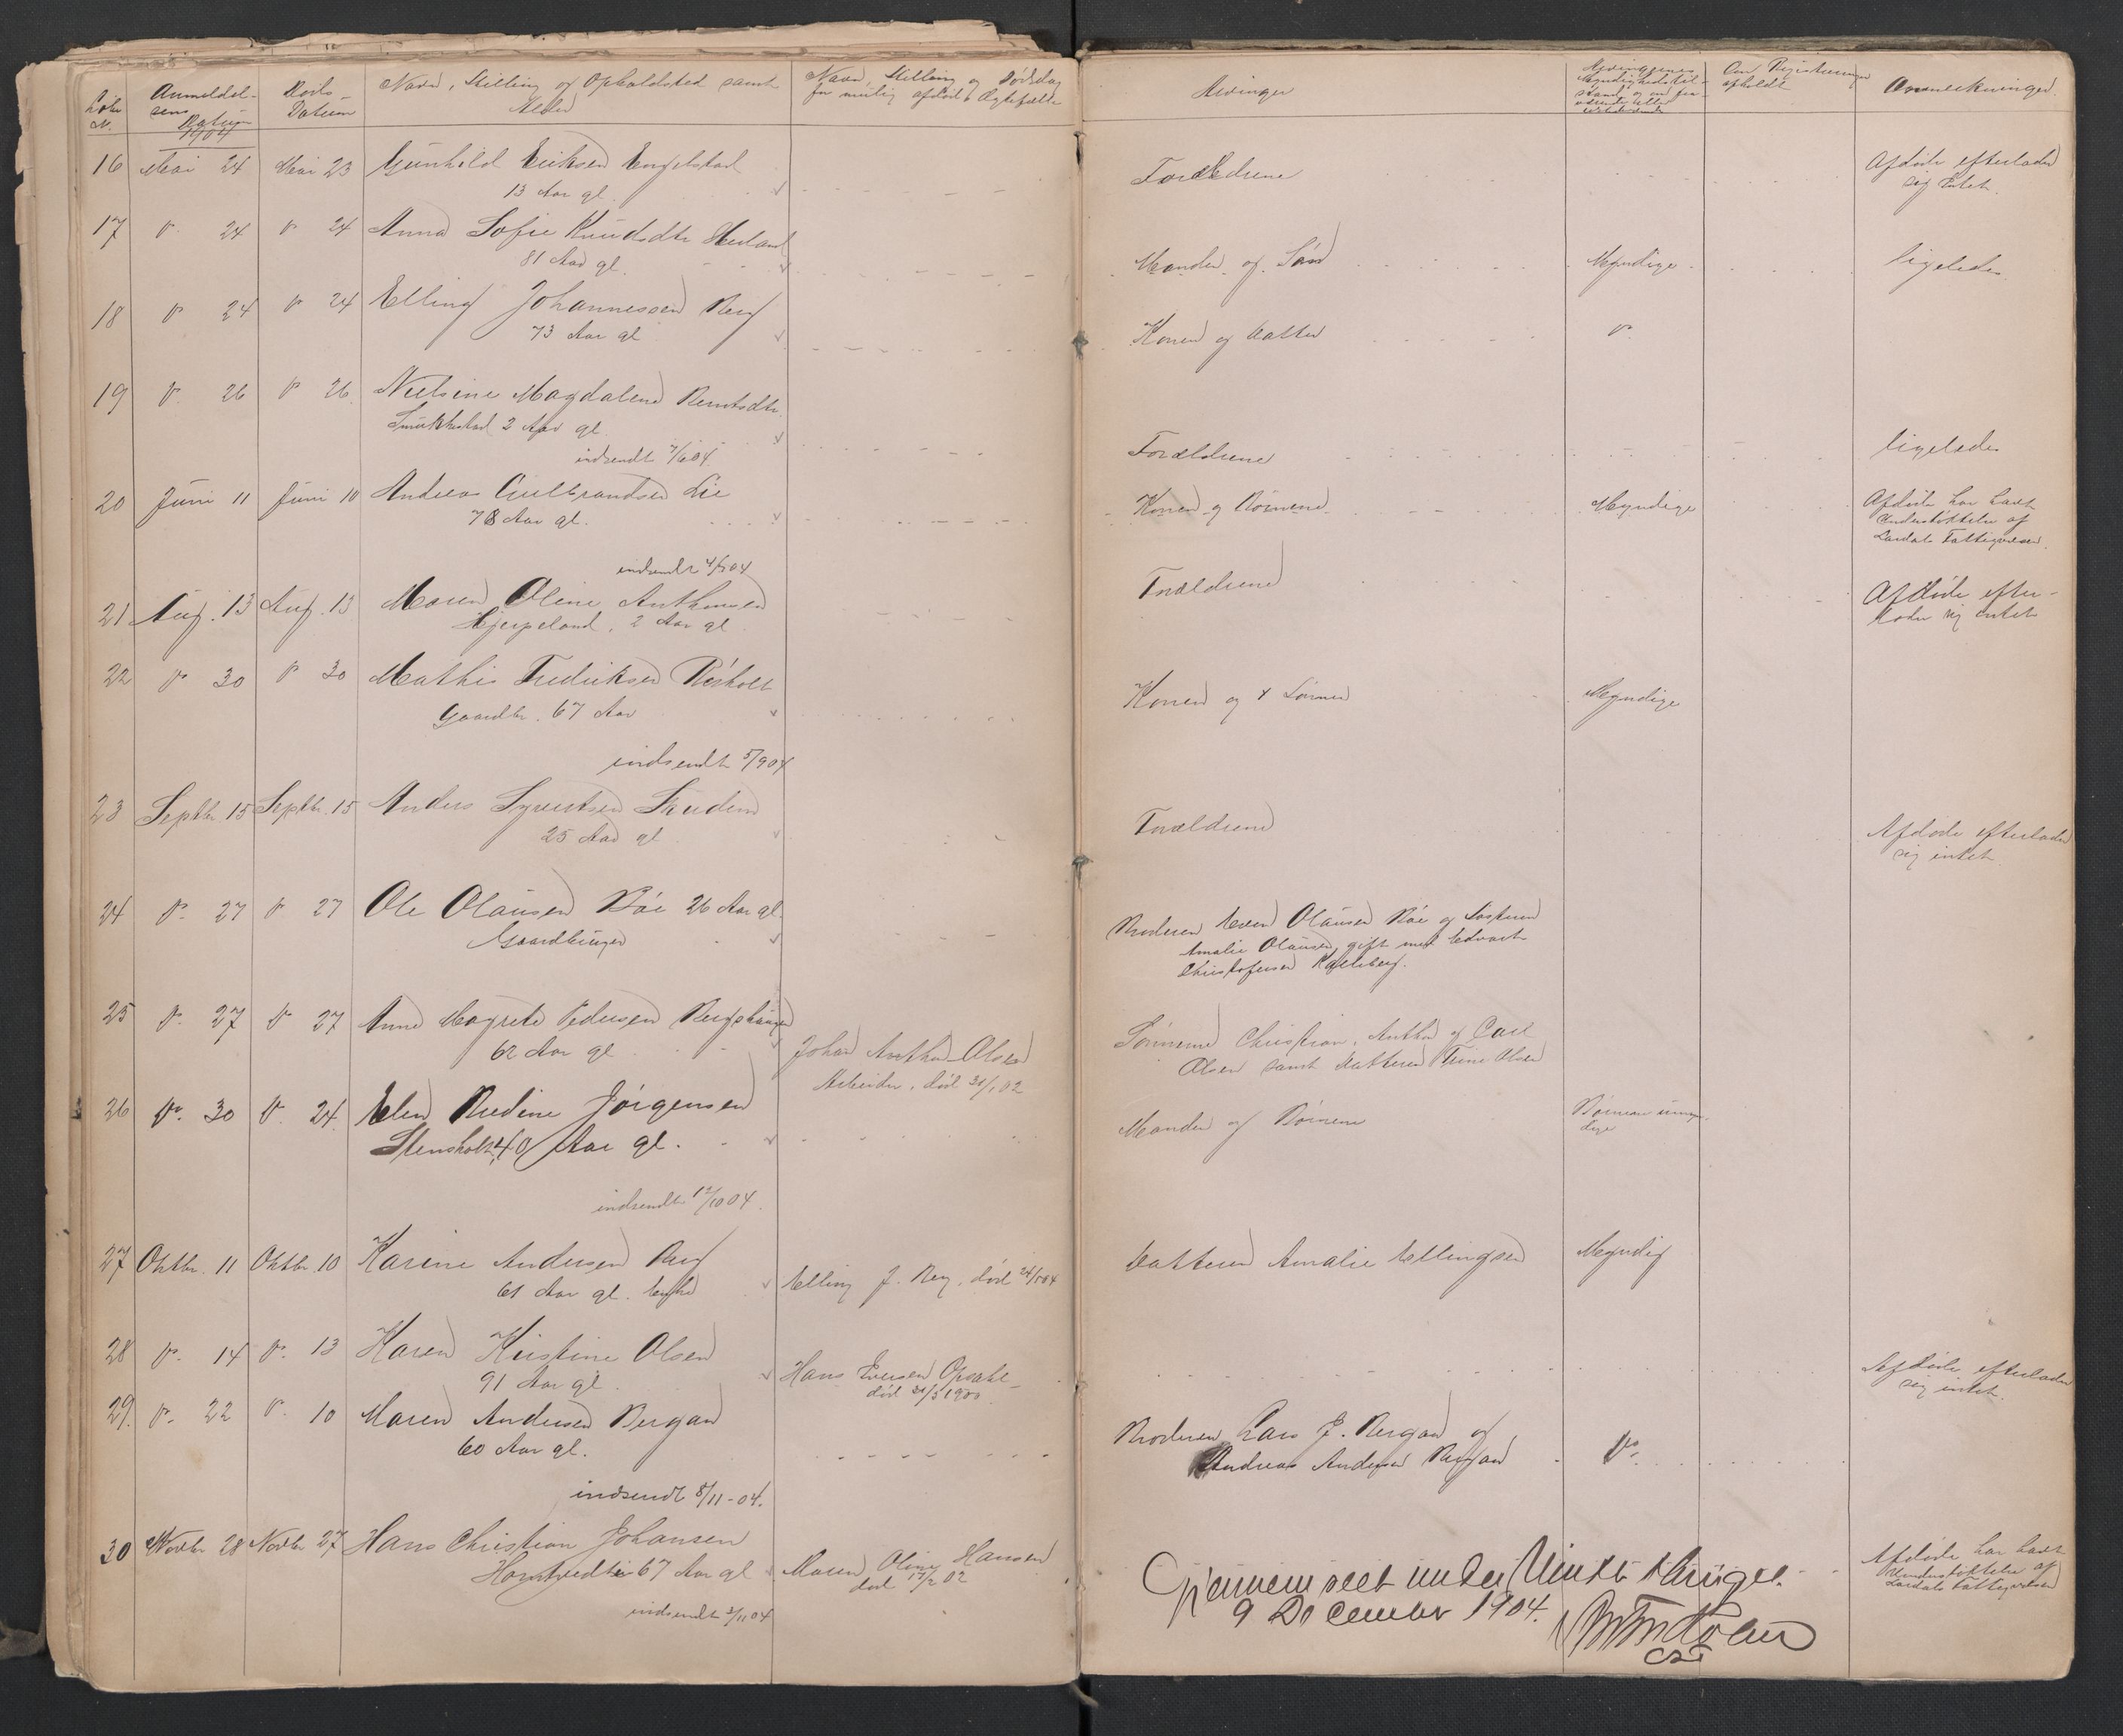 Løbe N.
Anmeldelsens Datum
Døds-Datum
Navn, Stilling og Opholdsted samt Alder
Navn, Stilling og Dødsdag for mulig afdød Ægtefælle
Arvinger
Arvingernes Myndighedstilstand og om
Om Registrering afholdt
Anmerkninger
1904
16 Mai 24 Mai 23 Gunhild Eriksen Engelstad
13 Aar gl.
Forældrene
Afdøde efterlader
sig Intet.
17 " 24 " 24 Anna Sofie Knudsdtr
81 Aar gl.
Manden og Søn Myndige ligeledes
18 " 24 " 24 Elling Johannessen Berg
73 Aar gl
Konen og Datter "
19 " 26 " 26 Nielsine Magdalene Berntsdtr.
2 Aar gl
indsendt 7/6 04
Forældrene ligeledes
20 Juni 11 Juni 10 Andreas Gulbrandsen Lie
78 Aar gl.
Konen og Børnene Myndige
Afdøde har havt
Understøttelse af
Lardal Fattigvæsen
indsendt 4/7 04
21 Aug. 13 Aug. 13 Maren Oline Anthonsen
Hjerpeland, 2 Aar gl
Forældrene
Afdøde efter-
lader sig intet
22 " 30 " 30 Mathis Fredriksen Røsholt
Gaardbr. 67 Aar
Konen og 4 Sønner Myndige
indsendt 5/9 04
23 Septbr. 15 Septbr. 15 Anders Syvertsen
25 Aar gl
Forældrene
Afdøde efterlader
sig intet.
24 " 27 " 27 Ole Olausen Bøe 26 Aar gl.
Gaardbruger
Broderen Even Olausen Bøe og Søsteren
Amalie Olausen, gift med Edvart
Christofersen
25 " 27 " 27 Anne Magrete Pedersen Bergskaugen
62 Aar gl
Johan Anthon Olsen
Arbeider, død 31/1 02
Sønnerne Christian, Anthon og Carl
Olsen samt Datteren Trine Olsen
26 " 30 " 24 Elen Bredine Jørgensen
Stensholt, 40 Aar gl.
Manden og Børnene
Børnene umyn-
dige
indsendt 12/10 04
27 Oktbr. 11 Oktbr. 10 Karine Andersen Berg
61 Aar gl. Enke
Elling J. Berg, død 24/5 04
Datteren Amalie Ellingsen Myndig
28 " 14 " 13 Karen Kristine Olsen
91 Aar gl.
Hans Iversen Opsahl
død 31/5 1900
Afdøde efterlader
sig intet.
29. " 22 " 10 Maren Andersen Bergan
60 Aar gl.
Broderen Lars J. Bergan og
Andreas Andersen Bergan "
indsendt 8/11-04.
30 Novbr 28 Novbr 27 Hans Christian Johansen
67 Aar gl
Maren Oline Hansen
død 17/2 02
Afdøde har havt
Understøttelse af
Lardals Fattigvæsen
indsendt 3/11 04
Gjennemseet under
9 December 1904.